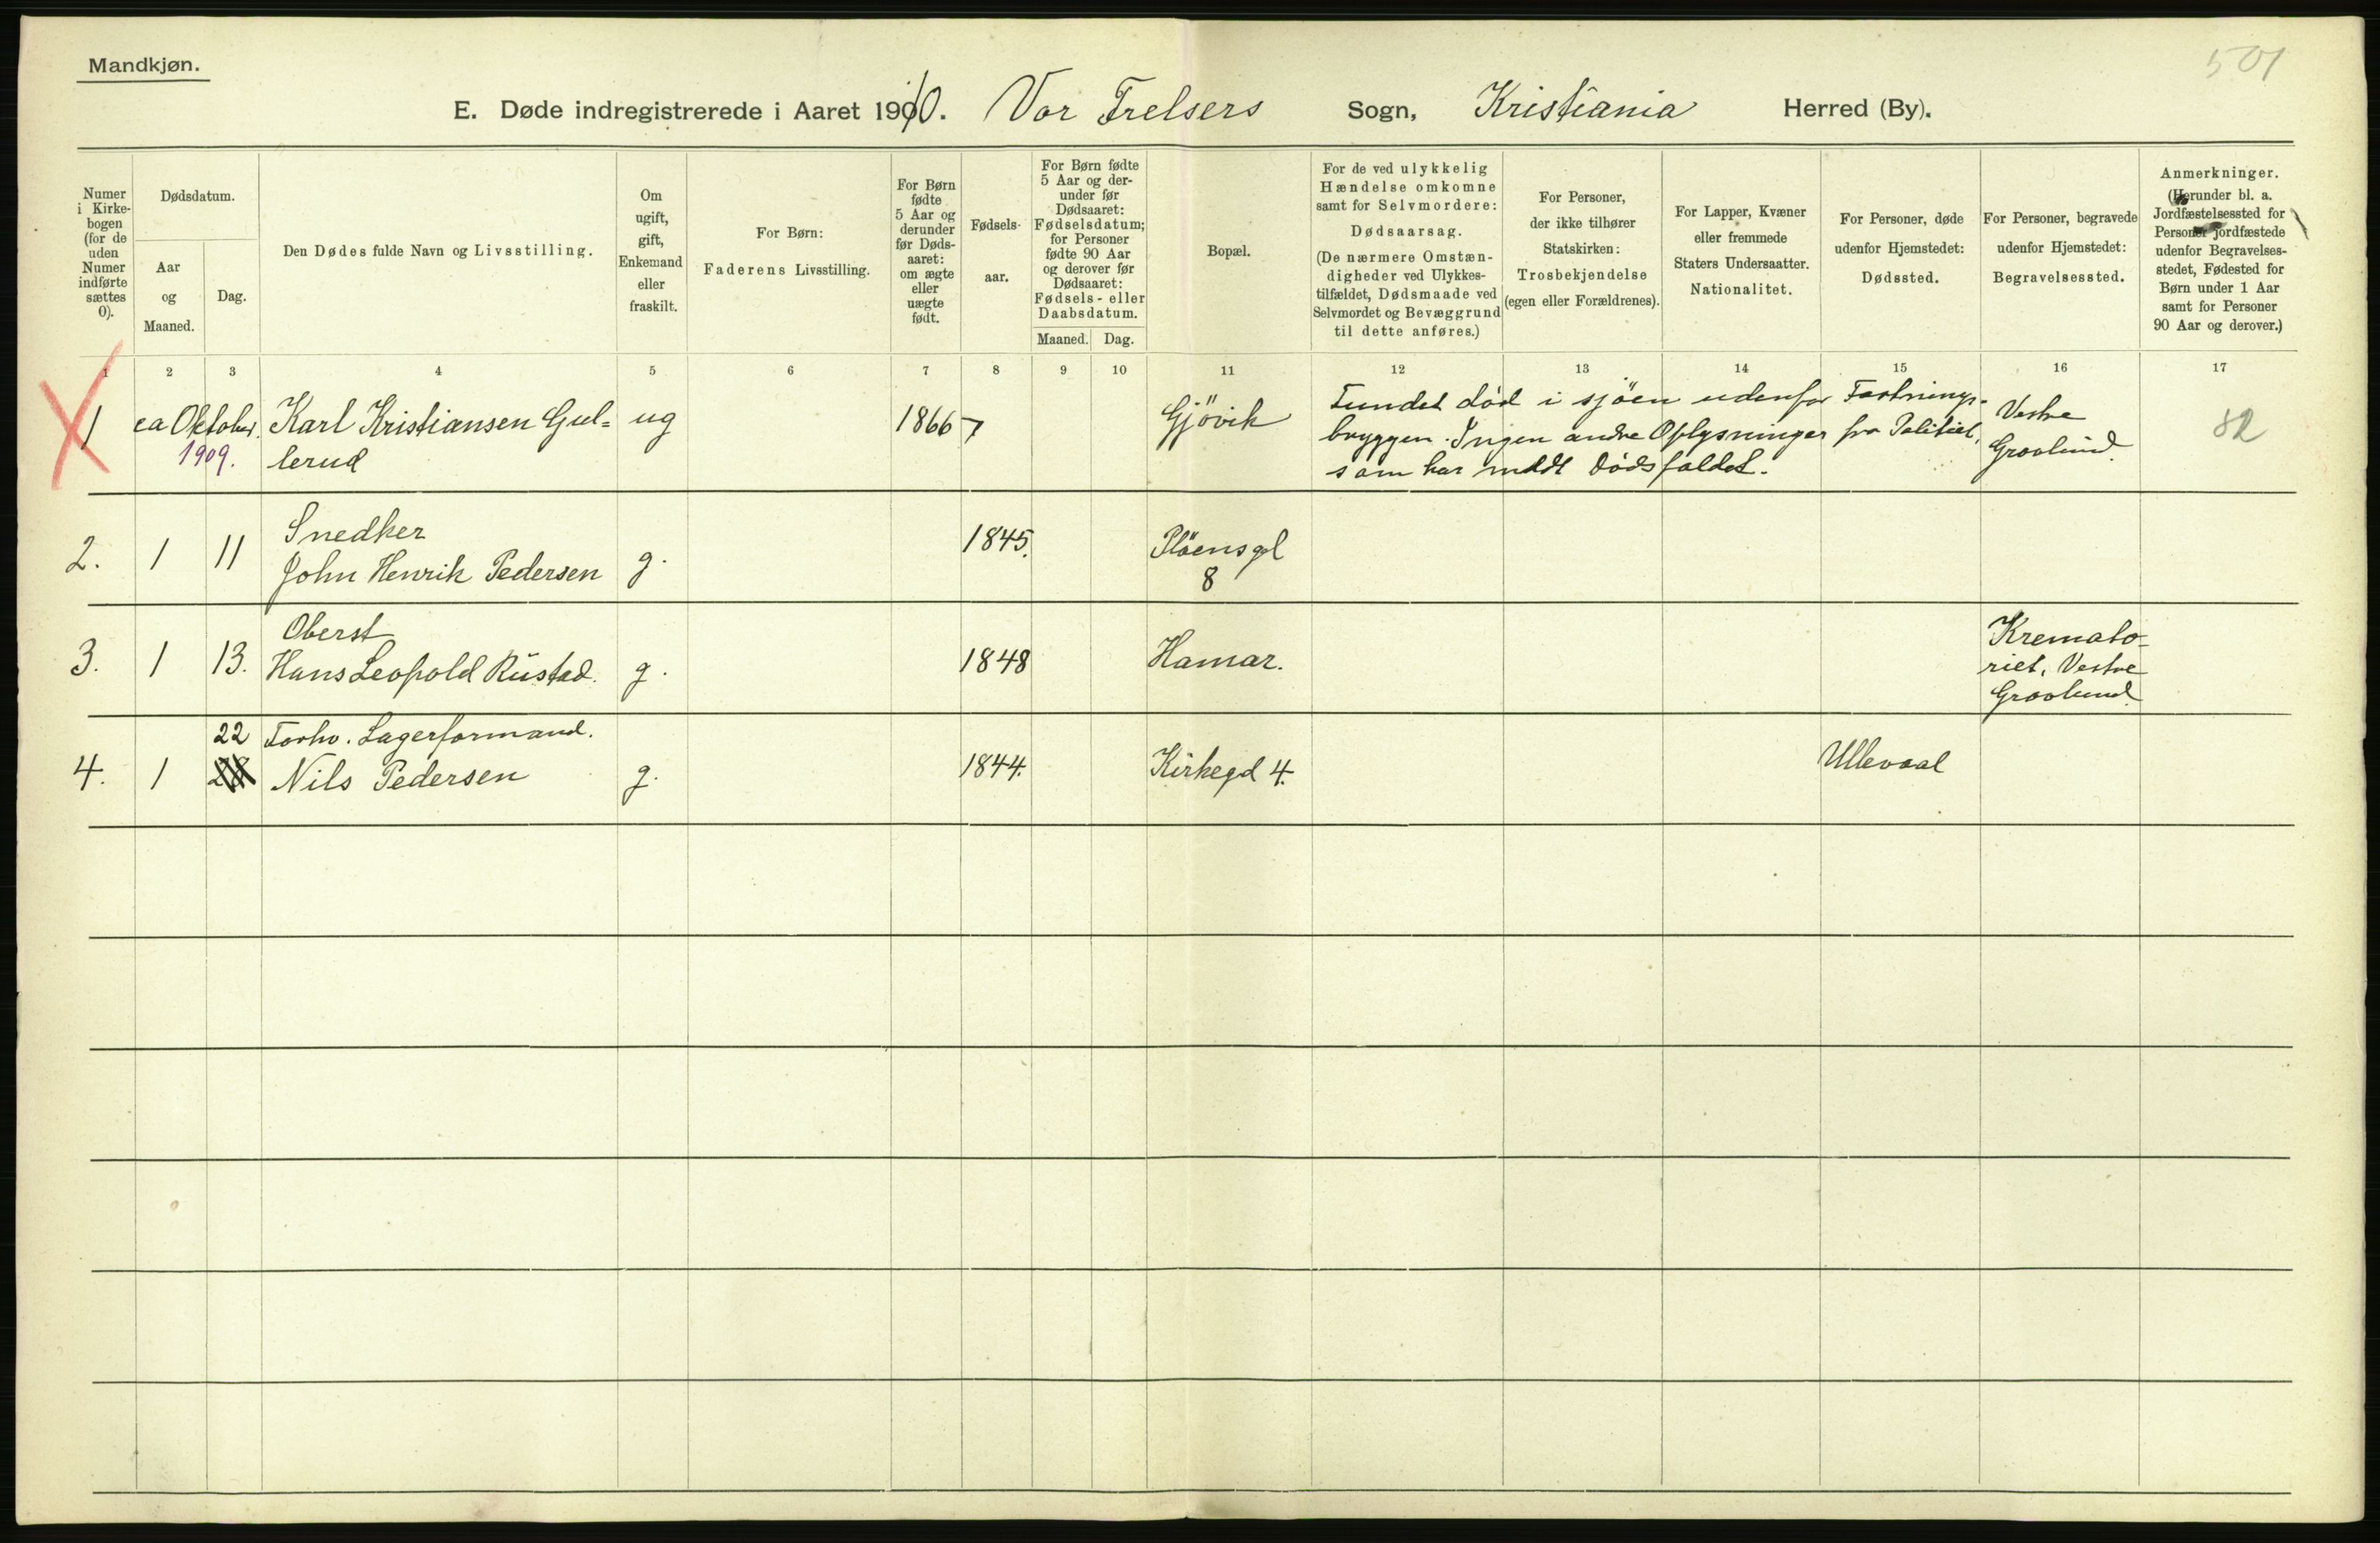 501
Mandkjøn.
E. Døde indregistrerede i Aaret 1910. Vor Frelsers Sogn, Kristiania Herred (By).
Numer
i Kirke-
bogen
(for de
uden
Numer
indførte
sættes
0).
Dødsdatum.
Aar
og
Maaned.
Dag.
Den Dødes fulde Navn og Livsstilling.
Om
ugift,
gift,
Enkemand
eller
fraskilt.
For Børn:
Faderens Livsstilling.
For Børn
fødte
5 Aar og
derunder
før Døds-
aaret:
om ægte
eller
uægte
født.
Fødsels-
aar.
For Børn fødte
5 Aar og der-
under før
Dødsaaret:
Fødselsdatum;
for Personer
fødte 90 Aar
og derover før
Dødsaaret:
Fødsels- eller
Daabsdatum.
Maaned. Dag.
Bopæl.
For de ved ulykkelig
Hændelse omkomne
samt for Selvmordere:
Dødsaarsag.
(De nærmere Omstæn-
digheder ved Ulykkes-
tilfældet, Dødsmaade ved
Selvmordet og Bevæggrund
til dette anføres.)
For Personer,
der ikke tilhører
Statskirken:
Trosbekjendelse
(egen eller Forældrenes).
For Lapper, Kvæner
eller fremmede
Staters Undersaatter.
Nationalitet.
For Personer, døde
udenfor Hjemstedet:
Dødssted.
For Personer, begravede
udenfor Hjemstedet:
Begravelsessted.
Anmerkninger.
(Herunder bl. a.
Jordfæstelsessted for
Personer jordfæstede
udenfor Begravelses-
stedet, Fødested for
Børn under 1 Aar
samt for Personer
90 Aar og derover.)
1 2 3 4 5 6 7 8 9 10 11 12 13 14 15 16 17
1 ca Oktober 1909. Karl Kristiansen Gul=
lerud
ug 1866 7 Gjövik
Fundet död i sjöen udenfor Fæstnings-
bryggen. Ingen andre Oplysninger fra Politiet,
som har meldt Dödsfaldet.
Vestre
Gravlund.
82
Snedker
2. 1 11 John Henrik Pedersen g. 1845. Plöensgd
8
Oberst
3. 1 13. Hans Leopold Rustad. g. 1848 Hamar.
Kremato=
riet, Vestre
Gravlund.
22 Forhv. Lagerformand.
4. 1 Nils Pedersen g. 1844. Kirkegd 4. Ullevaal